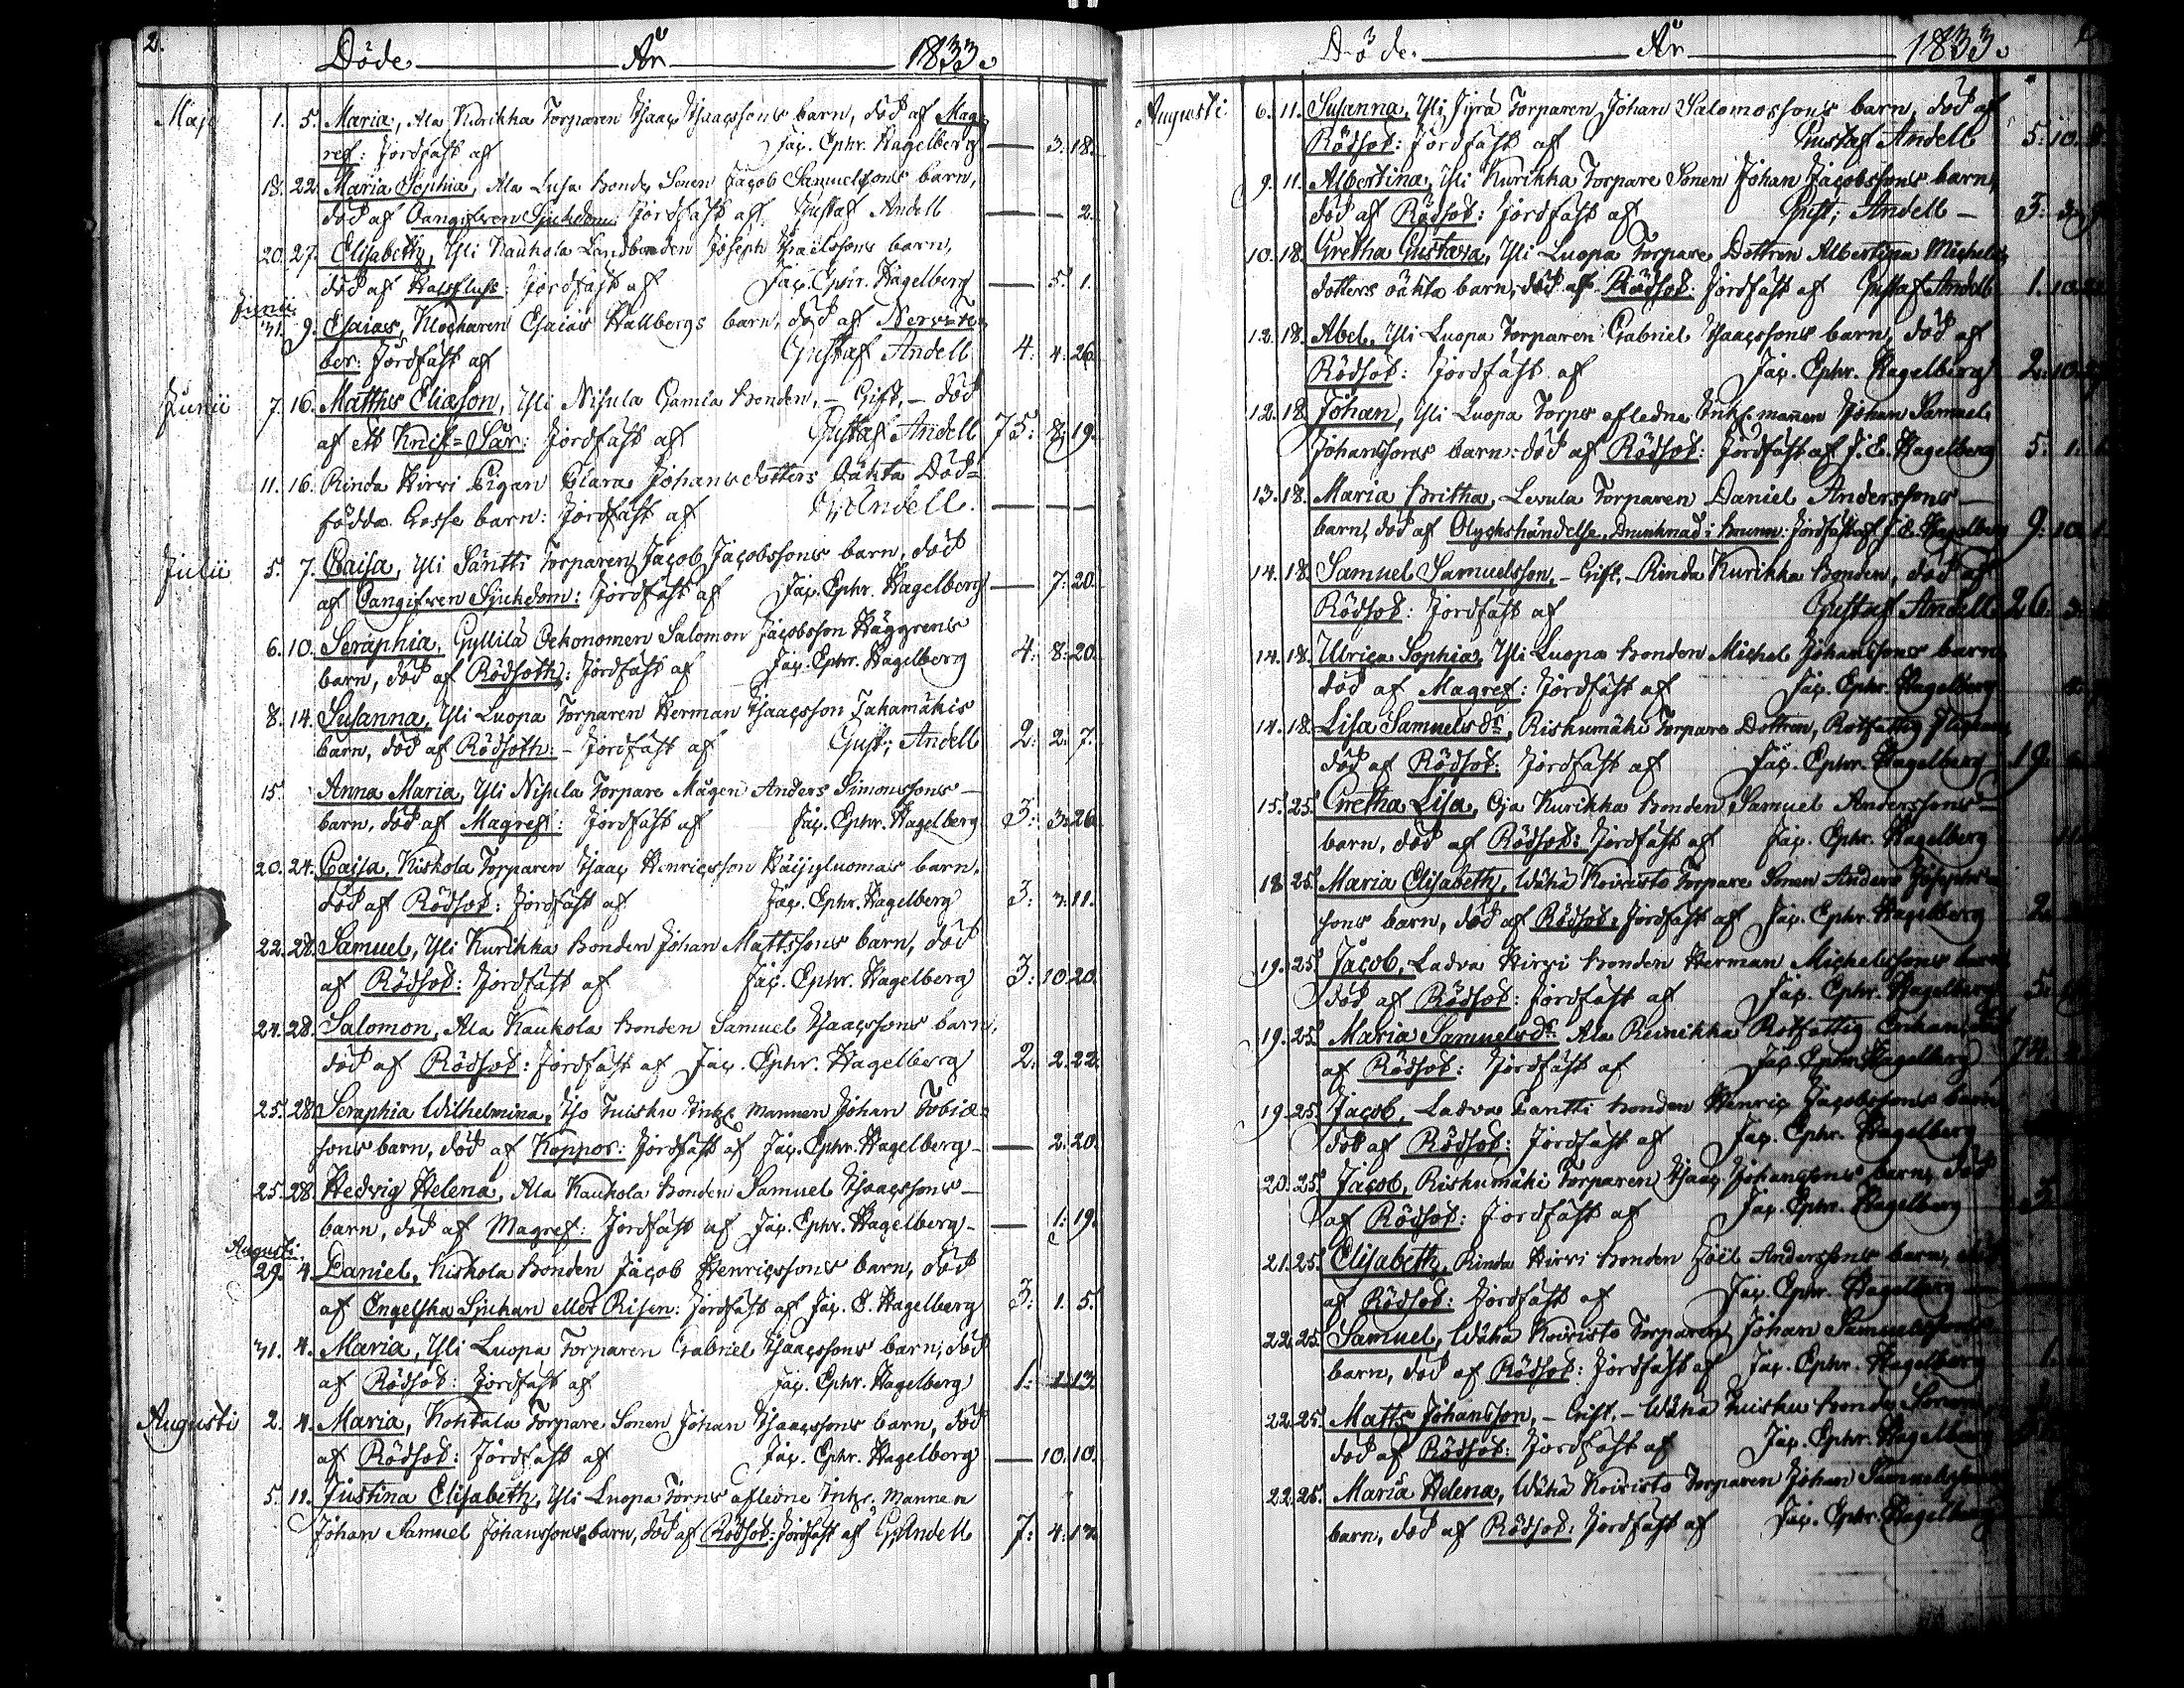 2.
Döde År 1833.
Maji 1. 5. Maria, Ala Kurikka Torparen Isaac Isaacssons barn, död af Mag-
ref: Jordfäst af Jac. Ephr. Hagelberg — 3. 18.
18. 22. Maria Sophia, Ala Lusa Bonde Sonen Jacob Samuelssons barn,
död af Oangifven Sjukdom: Jordfäst af Gustaf Andell — — 2.
20. 27. Elisabeth, Yli Kaukola Landbonden Joseph barn,
död af Halsfluss: Jordfäst af Jac. Ephr. Hagelberg — 5. 1.
Junii
31. 9. Esaias, Klockaren Esaias Hallbergs barn, död af Nerv-fe-
ber: Jordfäst af Gustaf Andell 4: 4. 26.
Junii 7. 16. Matths Eliæson, Yli Nisula Gamla Bonden, – Gift, – död
af ett Knif-Sår: Jordfäst af Gustaf Andell 75: 8: 19.
11. 16. Rinda Hirvi Pigan Clara Johansdotters Oäkta Död-
födda Gosse barn: Jordfäst af G; Andell. — — —
Julii 5. 7. Caisa, Yli Säntti Torparen Jacob Jacobssons barn, död
af Oangifven Sjukdom: Jordfäst af Jac. Ephr. Hagelberg — 7. 20.
6. 10. Seraphia, Gyllilä Oekonomen Salomon Jacobsson Häggrens
barn, död af Rödsoth: Jordfäst af Jac. Ephr. Hagelberg 4: 8: 20.
8. 14. Susanna, Yli Luopa Torparen Herman Isaacsson Takamäkis
barn, död af Rödsoth: – Jordfäst af Gust; Andell 2: 2: 7.
15. Anna Maria, Yli Nisula Torpare Mågen Anders Simonssons –
barn, död af Magref: Jordfäst af Jac. Ephr. Hagelberg 3: 3: 26.
20. 24. Cajsa, Kiskola Torparen Isaac Henricsson barn,
död af Rödsot: Jordfäst af Jac. Ephr. Hagelberg 3: 3: 11.
22. 28. Samuel, Yli Kurikka Bonden Johan Mattssons barn, död
af Rödsot: Jordfäst af Jac. Ephr. Hagelberg 3: 10. 20.
24. 28. Salomon, Ala Kaukola Bonden Samuel Isaacssons barn,
död af Rödsot: Jordfäst af Jac. Ephr. Hagelberg 2: 2: 22.
25. 28. Seraphia Wilhelmina, Iso Tuisku Inhs mannen Johan Tobiæ-
sons barn, död af Koppor: Jordfäst af Jac. Ephr. Hagelberg – — 2: 20.
25. 28. Hedvig Helena, Ala Kaukola Bonden Samuel Isaacssons –
barn, död af Magref: Jordfäst af Jac. Ephr. Hagelberg – — 1: 19.
Augusti.
29. 4. Daniel, Kiskola Bonden Jacob Henricssons barn, död
af Engelska Sjukan eller Risen: Jordfäst af Jac. E. Hagelberg 3: 1. 5.
31. 4. Maria, Yli Luopa Torparen Gabriel Isaacssons barn, död
af Rödsot: Jordfäst af Jac. Ephr. Hagelberg 1: 1: 13.
Augusti 2. 4. Maria, Kohtala Torpare Sonen Johan Isaacssons barn, död
af Rödsot: Jordfäst af Jac. Ephr. Hagelberg — 10. 10.
5. 11. Justina Elisabeth, Yli Luopa Torps afledne Inhs. Mannen
Johan Samuel Johanssons barn, död af Rödsot: Jordfäst af G; Andell 7: 4: 13.
3
Döde. År 1833.
Augusti: 6. 11. Susanna, Yli Jyrä Torparen Johan Salomossons barn, död af
Rödsot: Jordfäst af Gustaf Andell 5: 10.
9. 11. Albertina, Yli Kurikka Torpare Sonen Johan Jacobssons barn,
död af Rödsot: Jordfäst af Gust; Andell – 3:
10. 18. Gretha Gustava, Yli Luopa Torpare Dottren Albertina Michels
dotters oäkta barn, död af Rödsot: Jordfäst af Gustaf Andell 1. 10.
12. 18. Abel, Yli Luopa Torparen Gabriel Isaacssons barn, död af
Rödsot: Jordfäst af Jac. Ephr. Hagelberg 2. 10.
12. 18. Johan, Yli Luopa Torps afledne Inhs. mannen Johan Samuel
Johanssons barn: död af Rödsot: Jordfäst af J. E. Hagelberg 5. 1.
13. 18. Maria Britha, Levula Torparen Daniel Anderssons –
barn, död af Olyckshändelse, Drunknad i Brunn: Jordfäst af J. E. Hagelberg 9: 10.
14. 18. Samuel Samuelsson, – Gift, – Rinda Kurikka Bonden, död af
Rödsot: Jordfäst af Gustaf Andell 26. 3.
14. 18. Ulrica Sophia, Yli Luopa Bonden Michel Johanssons barn,
död af Magref: Jordfäst af Jac. Ephr. Hagelberg
14. 18. Lisa Samuelsdr, Riskumäki Torpare Dottren, Rotfattig
död af Rödsot: Jordfäst af Jac. Ephr. Hagelberg 19.
15. 25. Gretha Lisa, Oja Kurikka Bonden Samuel Anderssons –
barn, död af Rödsot: Jordfäst af Jac. Ephr. Hagelberg 11.
18. 25. Maria Elisabeth, Wähä Koivisto Torpare Sonen Anders Josephs-
sons barn, död af Rödsot: Jordfäst af Jac. Ephr. Hagelberg 2.
19. 25. Jacob, Ladva Hirvi Bonden Herman Michelssons barn
död af Rödsot: Jordfäst af Jac. Ephr. Hagelberg 5.
19. 25. Maria Samuelsdr Ala Reinikka Rotfattig Enkan
af Rödsot: Jordfäst af Jac. Ephr. Hagelberg 74.
19. 25. Jacob, Ladva Pantti Bonden Henric Jacobssons barn
död af Rödsot: Jordfäst af Jac. Ephr. Hagelberg
20. 25. Jacob, Riskumäki Torparen Isaac Johanssons barn, död
af Rödsot: Jordfäst af Jac. Ephr. Hagelberg 3.
21. 25. Elisabeth, Rinda Hirvi Bonden Joël Anderssons barn,
af Rödsot: Jordfäst af Jac. Ephr. Hagelberg
22. 25. Samuel, Wähä Koivisto Torparen Johan Samuelssons
barn, död af Rödsot: Jordfäst af Jac. Ephr. Hagelberg 1.
22. 25. Matts Johansson, – Gift, – Wähä Tuisku Bonde Sonen,
död af Rödsot: Jordfäst af Jac. Ephr. Hagelberg
22. 25. Maria Helena, Wähä Koivisto Torparen Johan Samuelssons
barn, död af Rödsot: Jordfäst af Jac. Ephr. Hagelberg